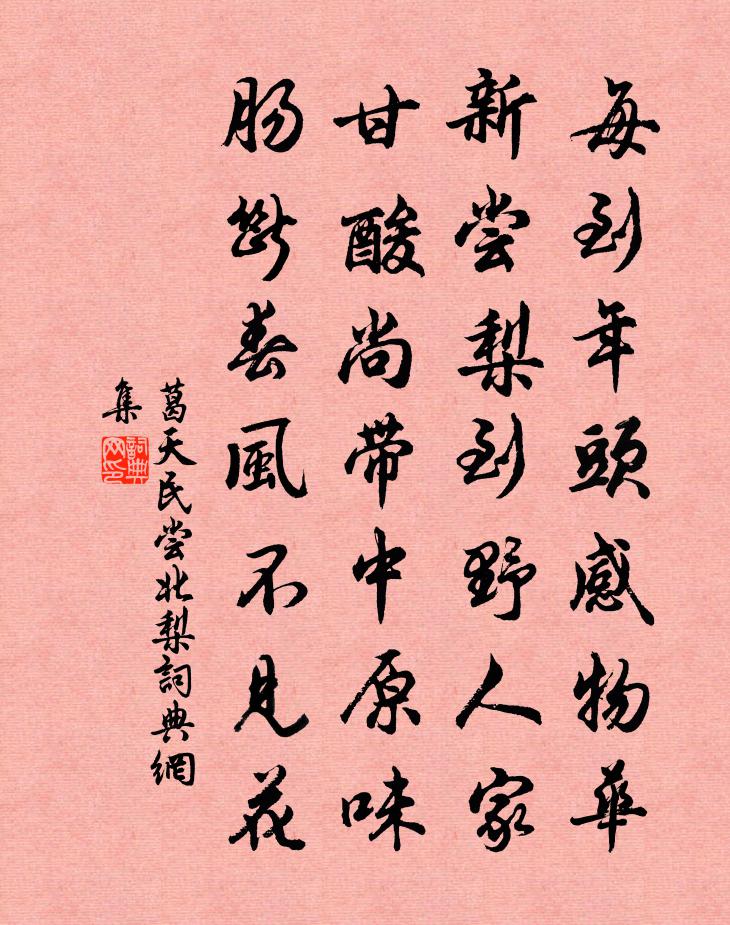 每到年頭感物華
新尝梨到野人家
甘酸尚帶中原味
肠斷春風不見花
葛天民尝北梨詞典網
集
詞典
网印